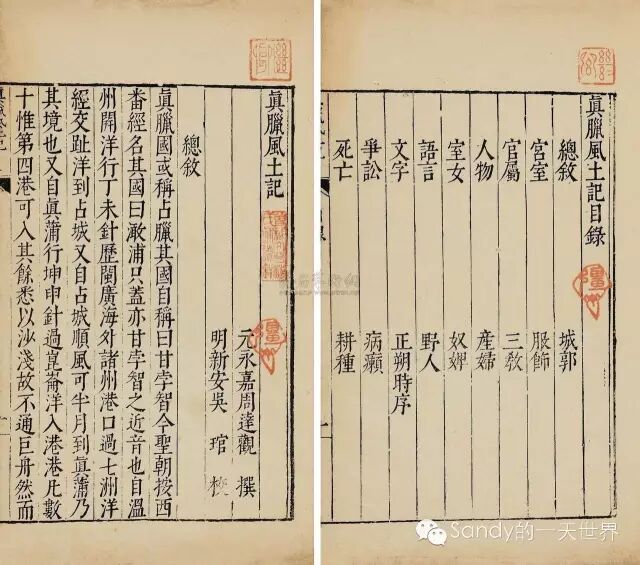 眞臘風土記目錄
總敘 城郭
宮室 服飾
官屬 三敎
人物 產婦
室女 奴婢
語言 野人
文字 正朔時序
爭訟 病癩
死亡 耕種
眞臘風土記
元永嘉周達觀 撰
明新安吳 琯 校
總敘
眞臘國或稱占臘其國自稱曰甘孛智今聖朝按西
番經名其國曰澉浦只蓋亦甘孛智之近音也自溫
州開洋行丁未針歷閩廣海外諸州港口過七洲洋
經交趾洋到占城又自占城順風可半月到眞蒲乃
其境也又自眞蒲行坤申針過崑崙洋入港港凡數
十惟第四港可入其餘悉以沙淺故不通巨舟然而
Sandy的一天世界